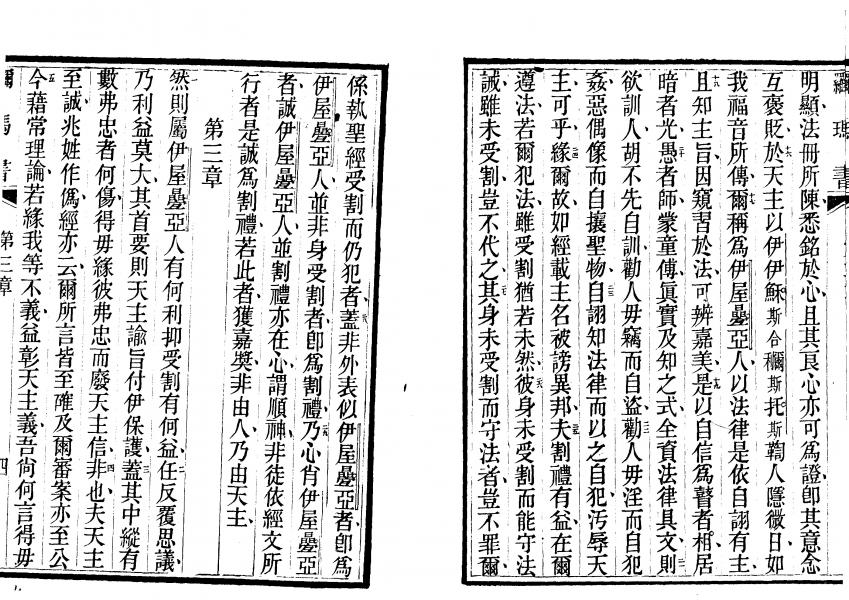 羅瑪書
明顯法冊所陳悉銘於心且其良心亦可爲證卽其意念
互褒貶於天主以伊伊穌斯合穪斯托斯鞫人隱微日如
我福音所傳爾稱爲伊屋疉亞人以法律是依自詡有主
且知主旨因窺習於法可辨嘉美是以自信爲瞽者相居
暗者光愚者師蒙童傅眞實及知之式全資法律具文則
欲訓人胡不先自訓勸人毋竊而自盜勸人毋淫而自犯
姦惡偶像而自攘聖物自詡知法律而以之自犯汚辱天
主可乎緣爾故如經載主名被謗異邦夫割禮有益在爾
遵法若爾犯法雖受割猶若未然彼身未受割而能守法
誡雖未受割豈不代之其身未受割而守法者豈不罪爾
係執聖經受割而仍犯者蓋非外表似伊屋疉亞者卽爲
伊屋疉亞人並非身受割者卽爲割禮乃心肖伊屋疉亞
者誠伊屋疉亞人並割禮亦在心謂順神非徒依經文所
行者是誠爲割禮若此者獲嘉奬非由人乃由天主
第三章
然則屬伊屋疉亞人有何利抑受割有何益任反覆思議
乃利益莫大其首要則天主諭旨付伊保護蓋其中縱有
數弗忠者何傷得毋緣彼弗忠而廢天主信非也夫天主
至誠兆姓作僞經亦云爾所言皆至確及爾審案亦至公
今藉常理論若緣我等不義益彰天主義吾尙何言得毋
第三章
四